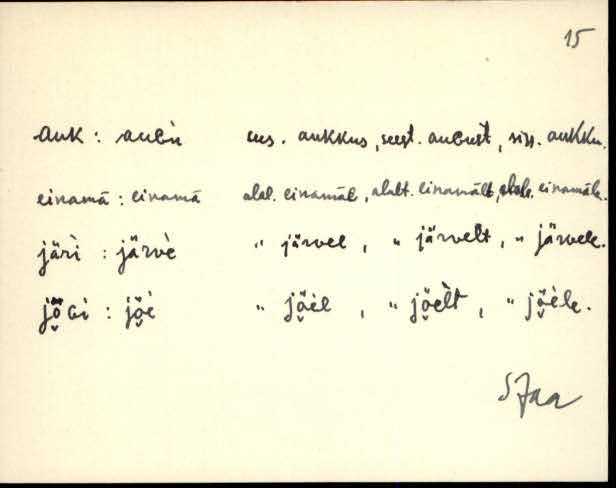 15
auk : auɢù ees. aukkus, seest. auɢust, siss. aukku.
einamā : einamā alal. einamāl, alalt. einamālt, alale. einamāle.
järì : järvè " järvel, " järvelt, " järvele.
jö̬ɢì : jö̬è " jö̬èl, " jö̬èlt, " jö̬èle.
SJaa